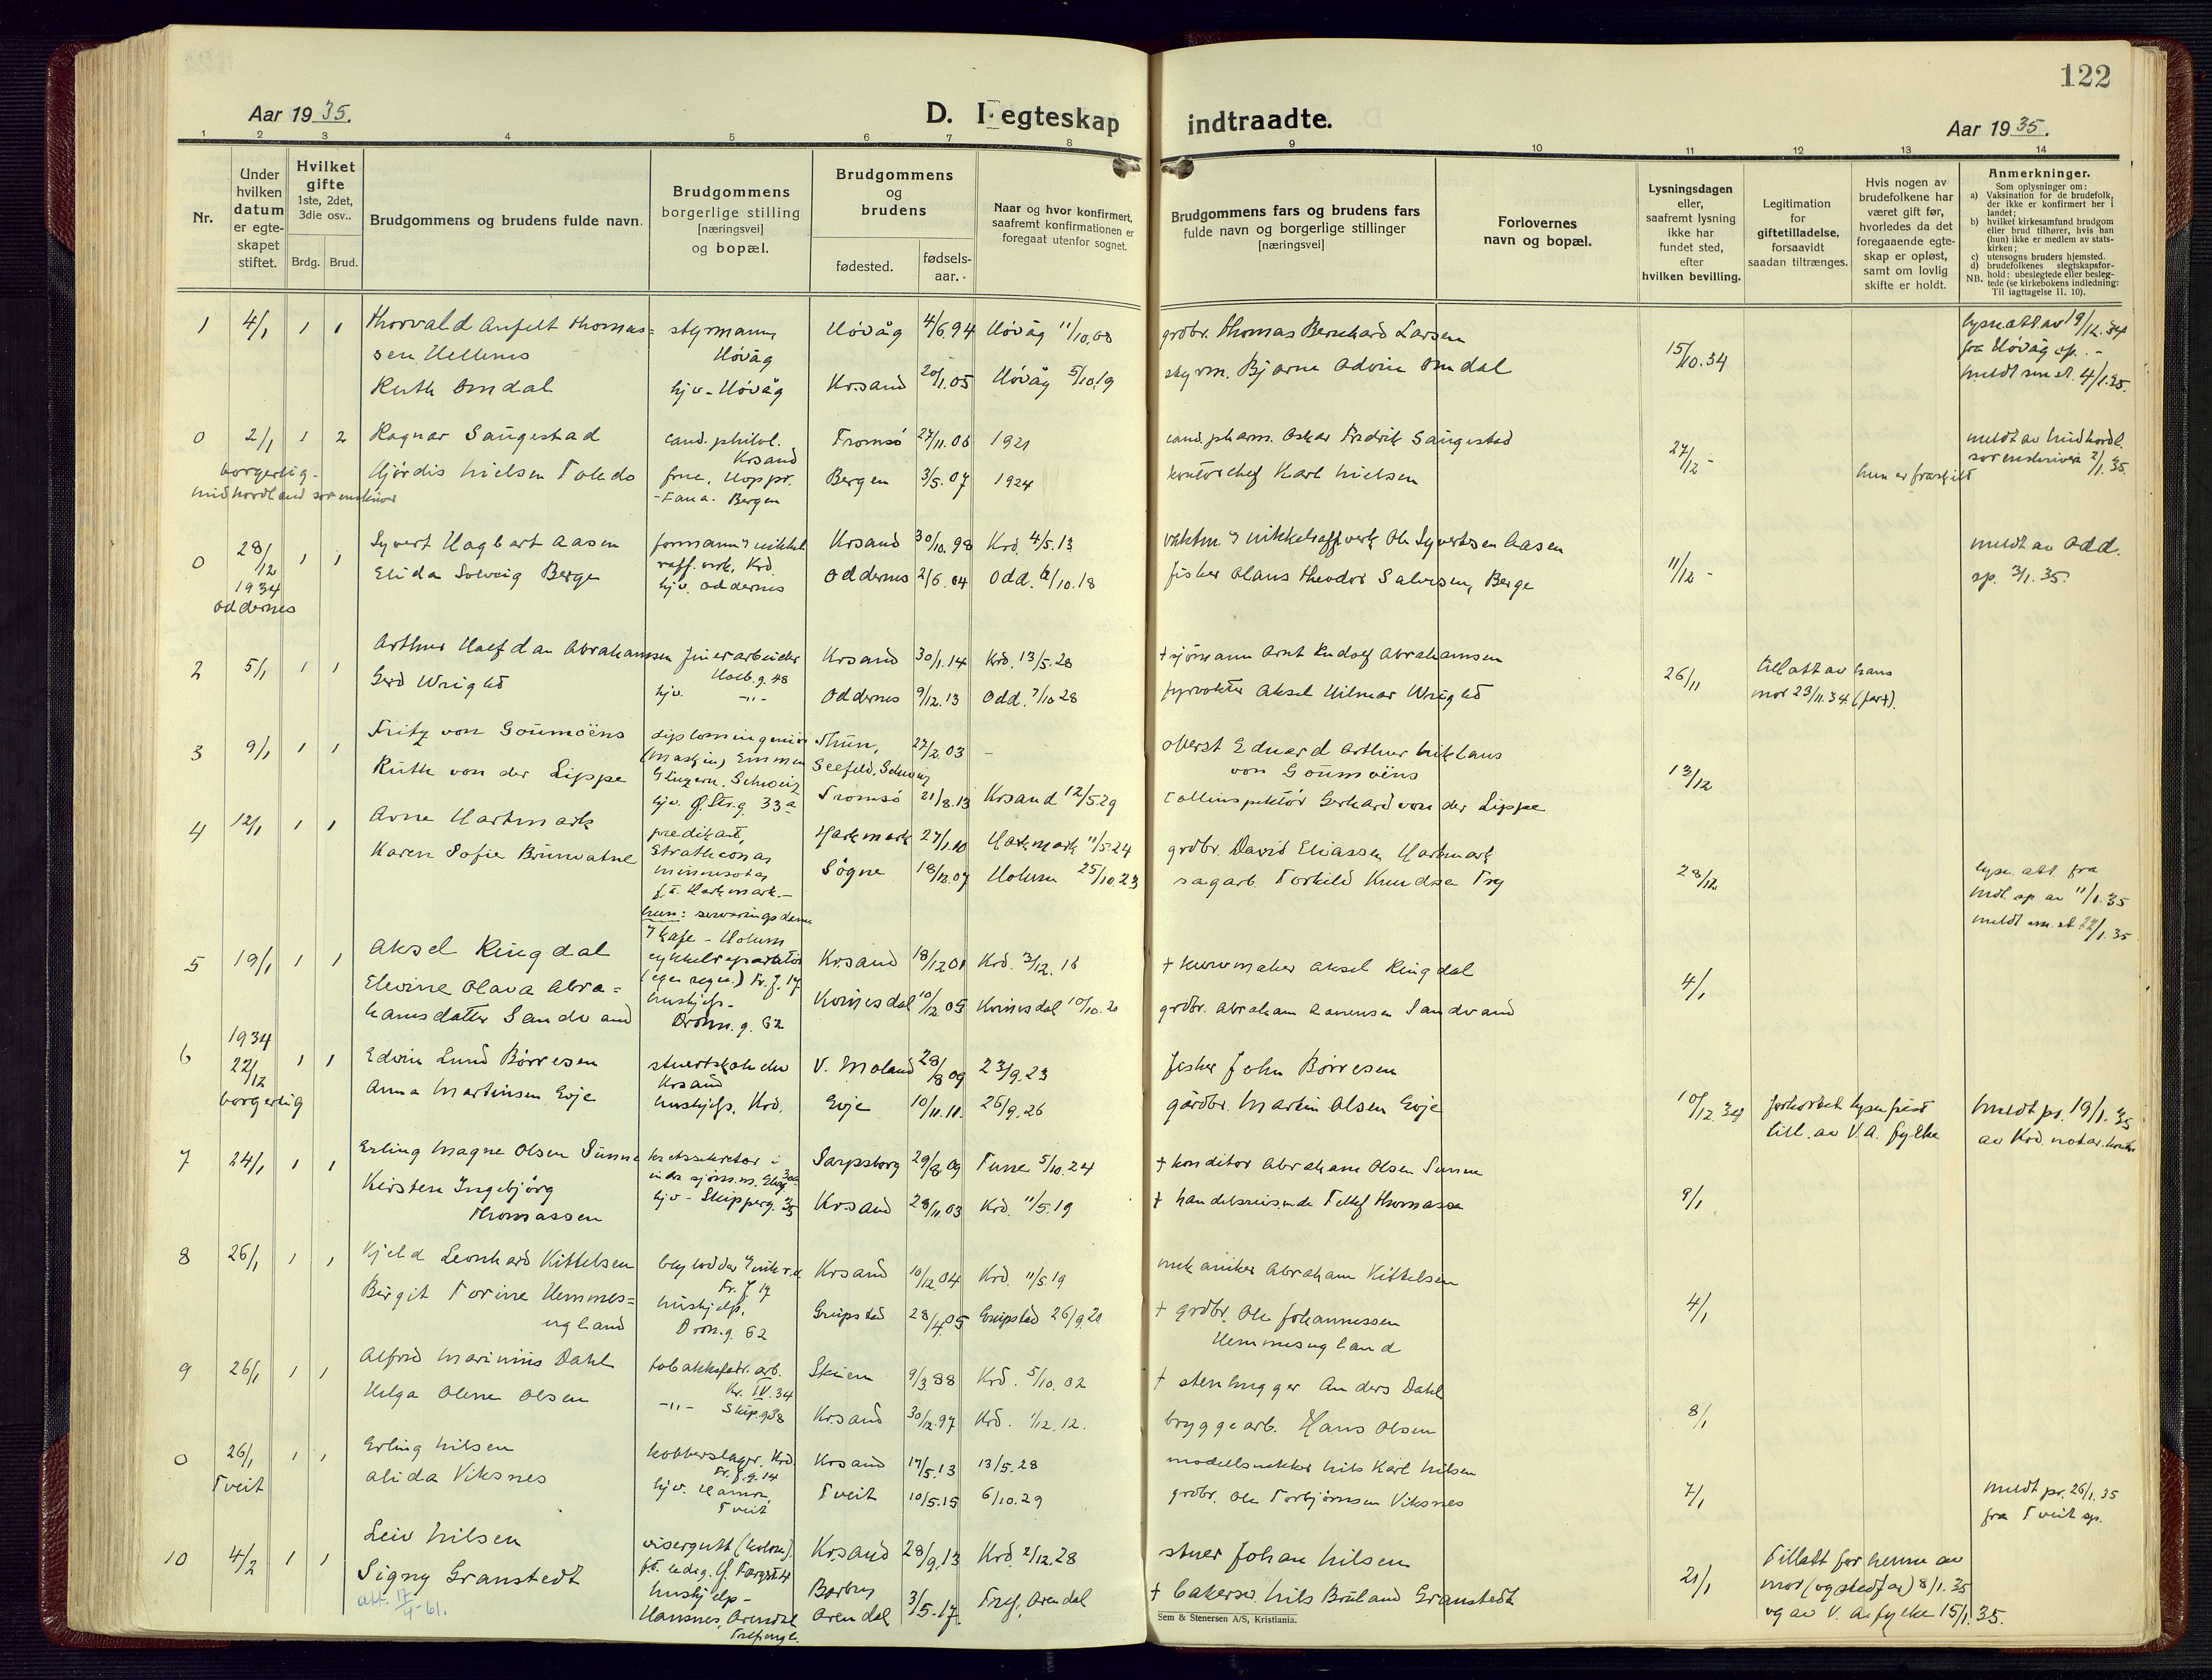 122
Aar 1935.
D. I egteskap indtraadte.
Aar 1935.
1 2 3 4 5 6 7 8 9 10 11 12 13 14
Nr.
Under hvilken datum er egte-skapet stiftet.
Hvilket gifte 1ste, 2det, 3die osv..
Brdg. Brud.
Brudgommens og brudens fulde navn.
Brudgommens borgerlige stilling [næringsvei] og bopæl.
Brudgommens og brudens
fødested.
fødsels-aar.
Naar og hvor konfirmert, saafremt konfirmationen er foregaat utenfor sognet.
Brudgommens fars og brudens fars fulde navn og borgerlige stillinger [næringsvei]
Forlovernes navn og bopæl.
Lysningsdagen eller, saafremt lysning ikke har fundet sted, efter hvilken bevilling.
Legitimation for giftetilladelse, forsaavidt saadan tiltrænges.
Hvis nogen av brudefolkene har været gift før, hvorledes da det foregaaende egte-skap er opløst, samt om lovlig skifte er holdt.
Anmerkninger.
Som oplysninger om:
a) Vaksination for de brudefolk, der ikke er konfirmert her i landet;
b) hvilket kirkesamfund brudgom eller brud tilhører, hvis han (hun) ikke er medlem av stats-kirken;
c) utensogns bruders hjemsted.
d) brudefolkenes slegtskapsfor-hold: ubeslegtede eller besleg-tede (se kirkebokens indledning:
NB. Til iagttagelse II. 10).
1 4/1 1 1 Thorvald Anfelt Thomas= styrmann, Høvåg 4/6.94 Høvåg 11/10.08 grdbr. Thomas Bernhard Larsen 15/10.34 lysn.att. av 19/12.34
sen Hellenes Høvåg fra Høvåg sp. -
Ruth Omdal hjv. - Høvåg Krsand 20/1.05 Høvåg 5/10.19 styrm. Bjarne Advin Omdal meldt sm st. 4/1.35.
0 2/1 1 2 Ragnar Saugestad cand. philol. Krsand Tromsø 27/11.06 1921 cand. pharm. Oskar Fredrik Saugestad 27/12 - meldt av Midhordl. sorenskriver 2/1.35.
borgerlig - Midhordland sorenskriver Hjørdis Nielsen Toledo frue, Hopp pr. Bergen 3/5.07 1924 kontorchef Karl Nielsen hun er fraskilt
- Fana. Bergen
0 28/12 1934 Oddernes 1 1 Syvert Hagbart Aasen formann i nikkel raff. verk, Krd Krsand 30/10.98 Krd. 4/5.13 vaktm. i nikkelraffverk Ole Syvertsen Aasen 11/12 - meldt av Odd.
Elida Solveig Berge hjv. Oddernes Oddernes 2/6.04 Odd. 6/10.18 fisker Olaus Theodor Salvesen, Berge sp. 3/1.35.
2 5/1 1 1 Arthur Halfdan Abrahamsen finerarbeider Holb.g. 48 Krsand 30/1.14 Krd. 13/5.28 + sjømann Arnt Rudolf Abrahamsen 26/11 till att av hans
Gerd Wright hjv. -"- Oddernes 9/12.13 Odd. 7/10 28 fyrvokter Aksel Hilmar Wright mor 23/11.34
3 9/1 1 1 Fritz von Goumoëns diplomingeniør Thun, 27/2.03 - oberst Eduard Arthur Niklaus
(maskin) Emmen Seefeld, Schweiz von Goumoëns 13/12
Ruth von der Lippe Schweiz
hjv. Ø. Str.g. 33a Tromsø 21/8.13 Krsand 12/5.29 tollinspektør Gerhard von der Lippe
4 12/1 1 1 Arne Hartmark predikant, Hartmark 27/1.10 Hartmark 11/5.24 grdbr. David Eliassen Hartmark 28/12
Karen Sofie Brunvatne Strathcona, Minnesota, Søgne 18/12.07 Holum 25/10.23 sagarb. Torkild Knudsen Try lysn. att. fra
f.t. Hartmark. - Mdl sp av 11/1.35
hun: serveringsdame meldt sm. st 22/1.35
i kafe - Holum
5 19/1 1 1 Aksel Ringdal sykkelreparatør Krsand 18/12 01 Krd. 3/12.16 + kurvmaker Aksel Ringdal 4/1
Elevine Olava Abra= (egen regn.) Fr. f. 17
hamsdatter Sandvand hushjelp. - Dronn.g. 62 Kvinesdal 10/12 05 Kvinesdal 10/10.20 grdbr. Abraham Aanensen Sandvand
6 1934 22/12 borgerlig 1 1 Edvin Lund Børresen stuert Krsand V. Moland 28/8 09 23/9.23 fisker John Børresen
Anna Martinsen Evje hushjelp. Krd. Evje 10/11.11. 26/9.26 gårdbr. Martin Olsen Evje 10/12.34 forkortet lysn. frist meldt pr. 19/1.35
till. av V.A. fylke av Krd. notar. kontor
7 24/1 1 1 Erling Magne Olsen Sunne kretssekretær i Sarpsborg 29/8.09 Tune 5/10.24 + konditor Abraham Olsen Sunne
indre sjøm.m. Elvg. 30a
Kirsten Ingebjørg Thomassen hjv - Skipperg. 35 Krsand 28/11.03 Krd. 11/5.19 + handelsreisende Tellef Thomassen 9/1
8 26/1 1 1 Kjeld Leonhard Kittelsen blylodder i nikk.v. Fr. f 17 Krsand 10/12.04 Krd. 11/5.19 mekaniker Abraham Kittelsen
Birgit Torine Hemmes= ugland hushjelp, Dron.g. 62 Grimstad 28/4.05 Grimstad 26/9.20 + grdbr. Ole Johannessen Hemmesugland 4/1
9 26/1 1 1 Alfred Marinius Dahl tobakksfabr. arb. Kr. IV. 34 Skien 9/3.88 Krd. 5/10.02 + stenhugger Anders Dahl
Helga Olene Olsen -"- Skip.g 38 Krsand 30/12.97 Krd. 1/12.12. bryggearb. Hans Olsen 8/1
0 26/1 Tveit 1 1 Erling Nilsen kobberslager. Krd. Fr. f.g. 14 Krsand 17/5.13 13/5.28 modellsnekker Nils Karl Nilsen
Alida Viksnes hjv. Hamre, Tveit Tveit 10/5.15 6/10.29 grdbr. Ole Torbjørnsen Viksnes 7/1 meldt pr. 26/1.35
fra Tveit sp.
10 4/2 1 1 Leiv Nilsen visergutt Krsand 28/9.13 Krd. 2/12.28 stuer Johan Nilsen 21/1 Tillatt for henne av
Signy Granstedt hushjelp - Barbu, Arendal 3/5.17. Tref. Arendal + bakersv. Nils Bruland Granstedt mor (og stedfar) 8/1.35
att. 17/4-61. Hansnes, Arendal og av V. A. fylke 15/1.35.
Sem & Stenersen A/S, Kristiania.